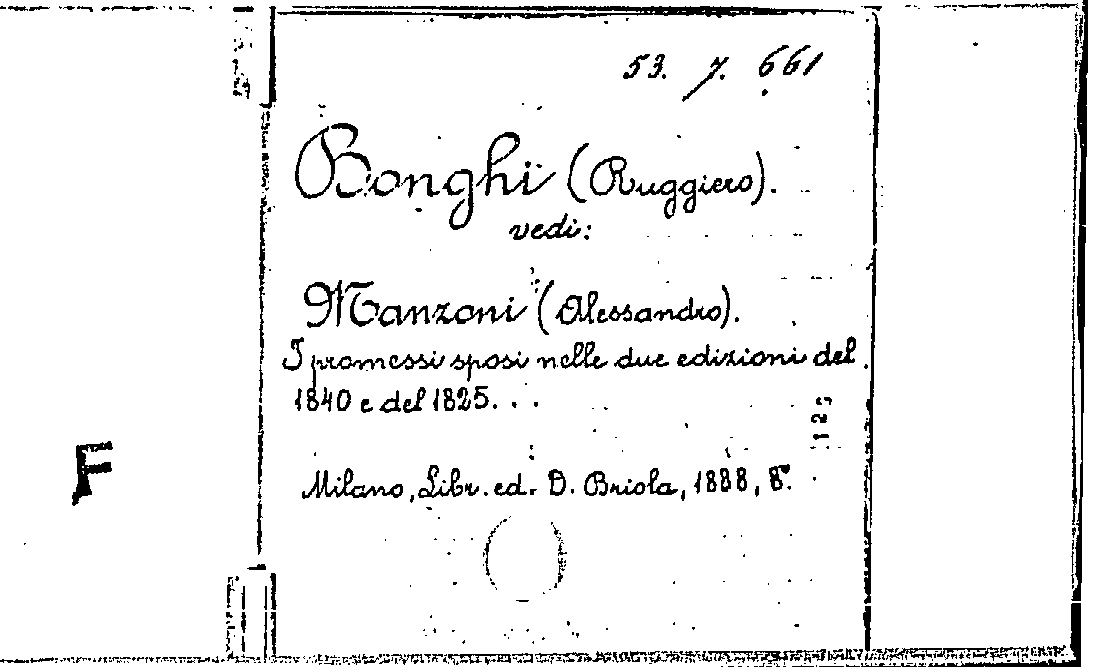 53. 7. 661
Bonghi (Ruggiero).
vedi:
Manzoni (Alessandro).
I promessi sposi nelle due edizioni del
1840 e del 1825. . .
123
F
Milano, Libr. ed. D. Briola, 1888, 8°.